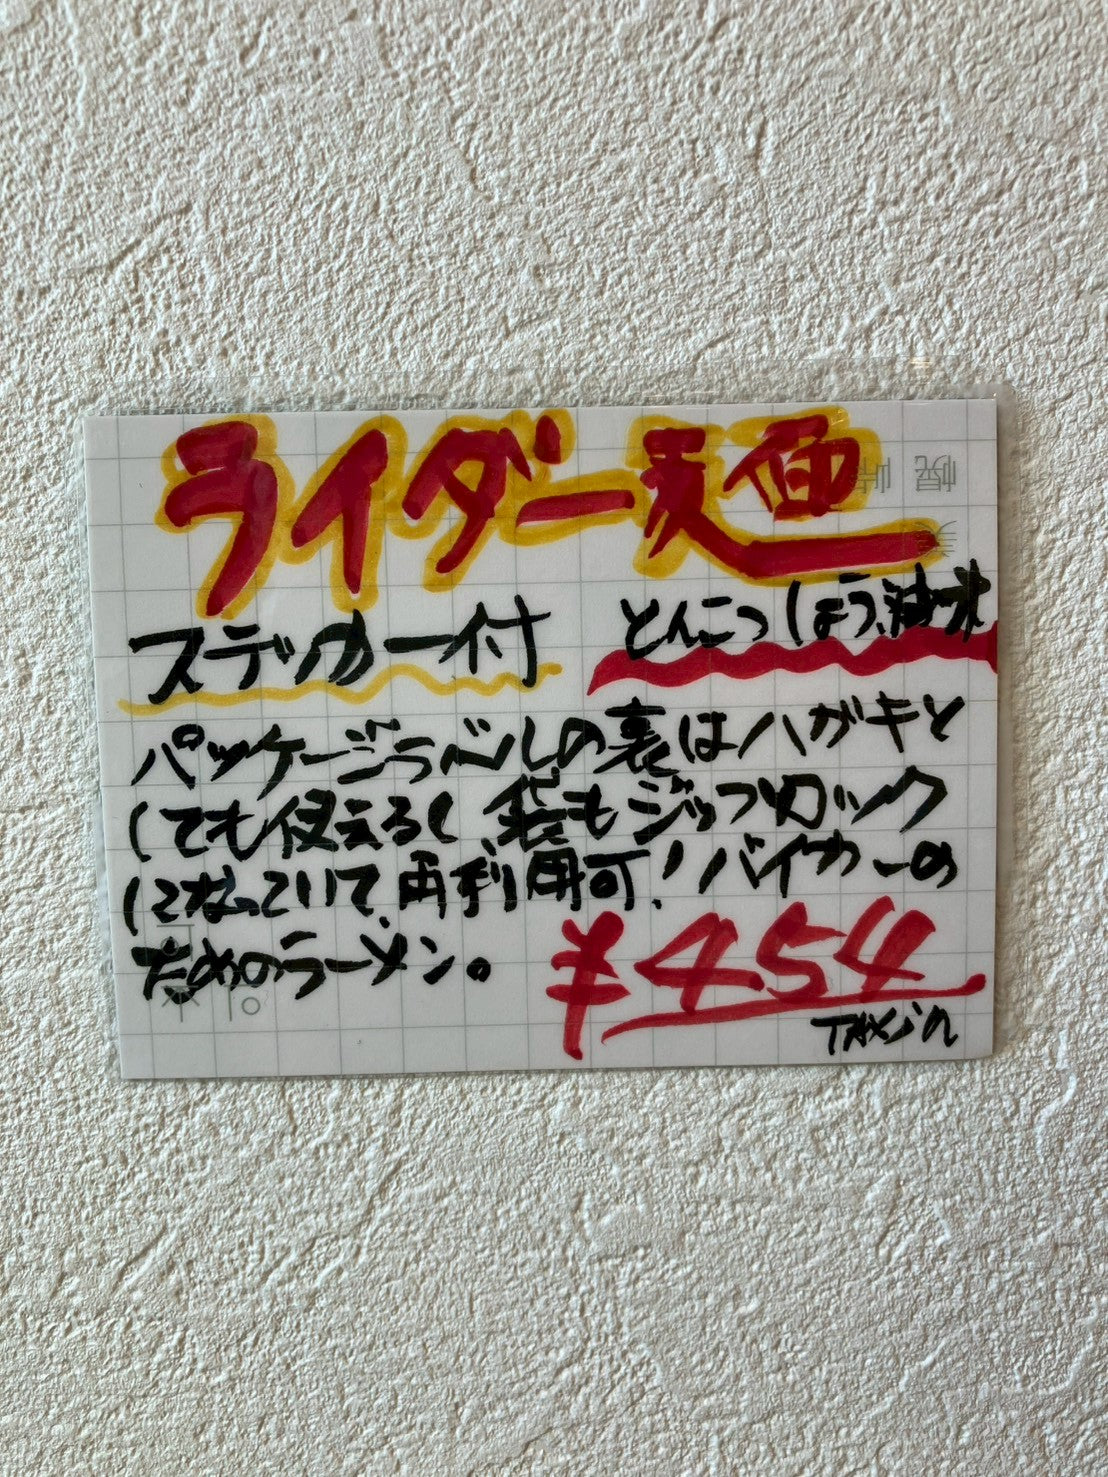 ライダー麺
ステッカー付
とんこつしょう油味
パッケージラベルの裏はハガキと
しても使えるし、袋もジップロック
になっていて、再利用可!バイカーの
ためのラーメン。
¥454
TAXin